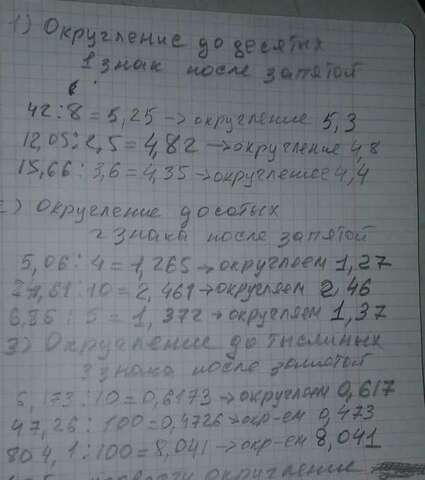 1) Округление до десятых
1 знак после запятой
42:8=5,25→округление 5,3
12,05:2,5=4,82→округление 4,8
15,66:3,6=4,35→округление 4,4
2) Округление до сотых
2 знака после запятой
5,06:4=1,265→округляем 1,27
24,61:10=2,461→округляем 2,46
6,86:5=1,372→округляем 1,37
3) Округление до тысячных
3 знака после запятой
6,173:10=0,6173→округляем 0,617
47,26:100=0,4726→окр-ем 0,473
804,1:100=8,041→окр-ем 8,041
округление